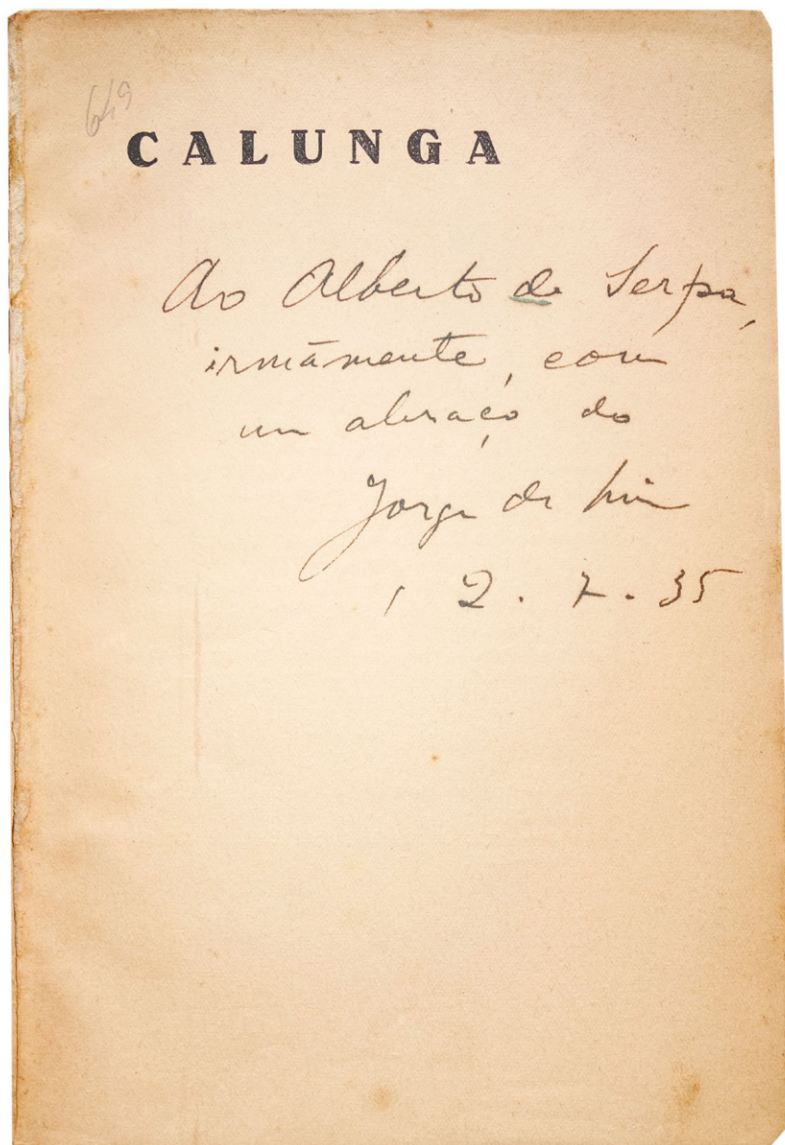 649
CALUNGA
Ao Alberto de Serpa,
irmãmente, com
um abraço do
Jorge de Lima
12.7.35